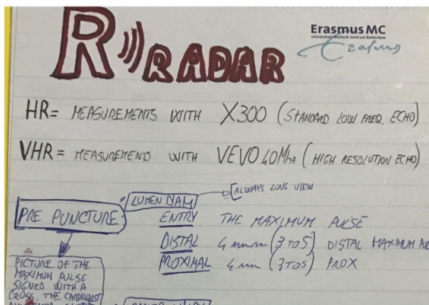 Erasmus MC
Erasmus
R RADAR
HR = MEASUREMENTS WITH X300 (STANDARD LOW FREQ. ECHO)
VHR = MEASUREMENTS WITH VEVO 40Mhz (HIGH RESOLUTION ECHO)
LUMEN DIAM
ALWAYS LONG VIEW
PRE PUNCTURE
ENTRY THE MAXIMUM PULSE
DISTAL 4 mm (3 TO 5) DISTAL MAXIMUM
PROXIMAL 4 mm (3 TO 5) PROX
PICTURE OF THE
MAXIMUM PULSE
SIGNED WITH A
CROSS, THE